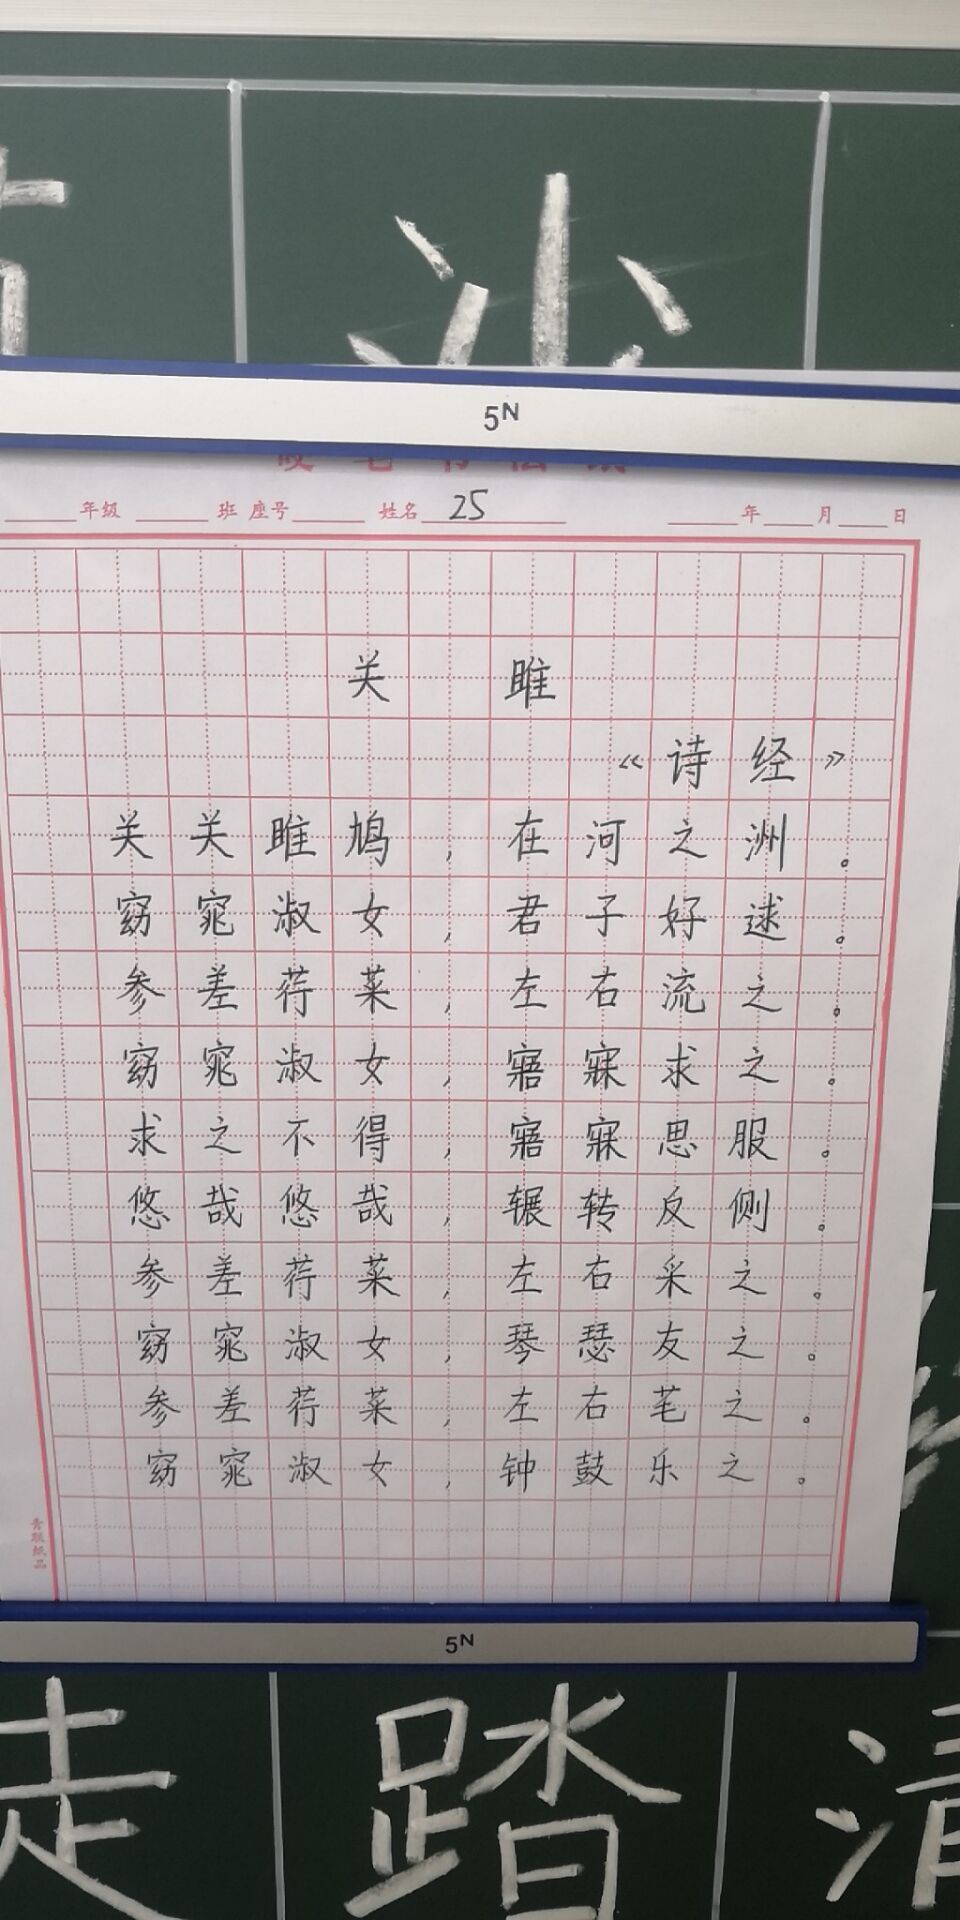 5N
年级 班 座号 姓名 25 年 月 日
关 雎
《诗 经》
关关雎鸠，在河之洲。
窈窕淑女，君子好逑。
参差荇菜，左右流之。
窈窕淑女，寤寐求之。
求之不得，寤寐思服。
悠哉悠哉，辗转反侧。
参差荇菜，左右采之。
窈窕淑女，琴瑟友之。
参差荇菜，左右芼之。
窈窕淑女，钟鼓乐之。
青联纸品
5N
走 踏 清